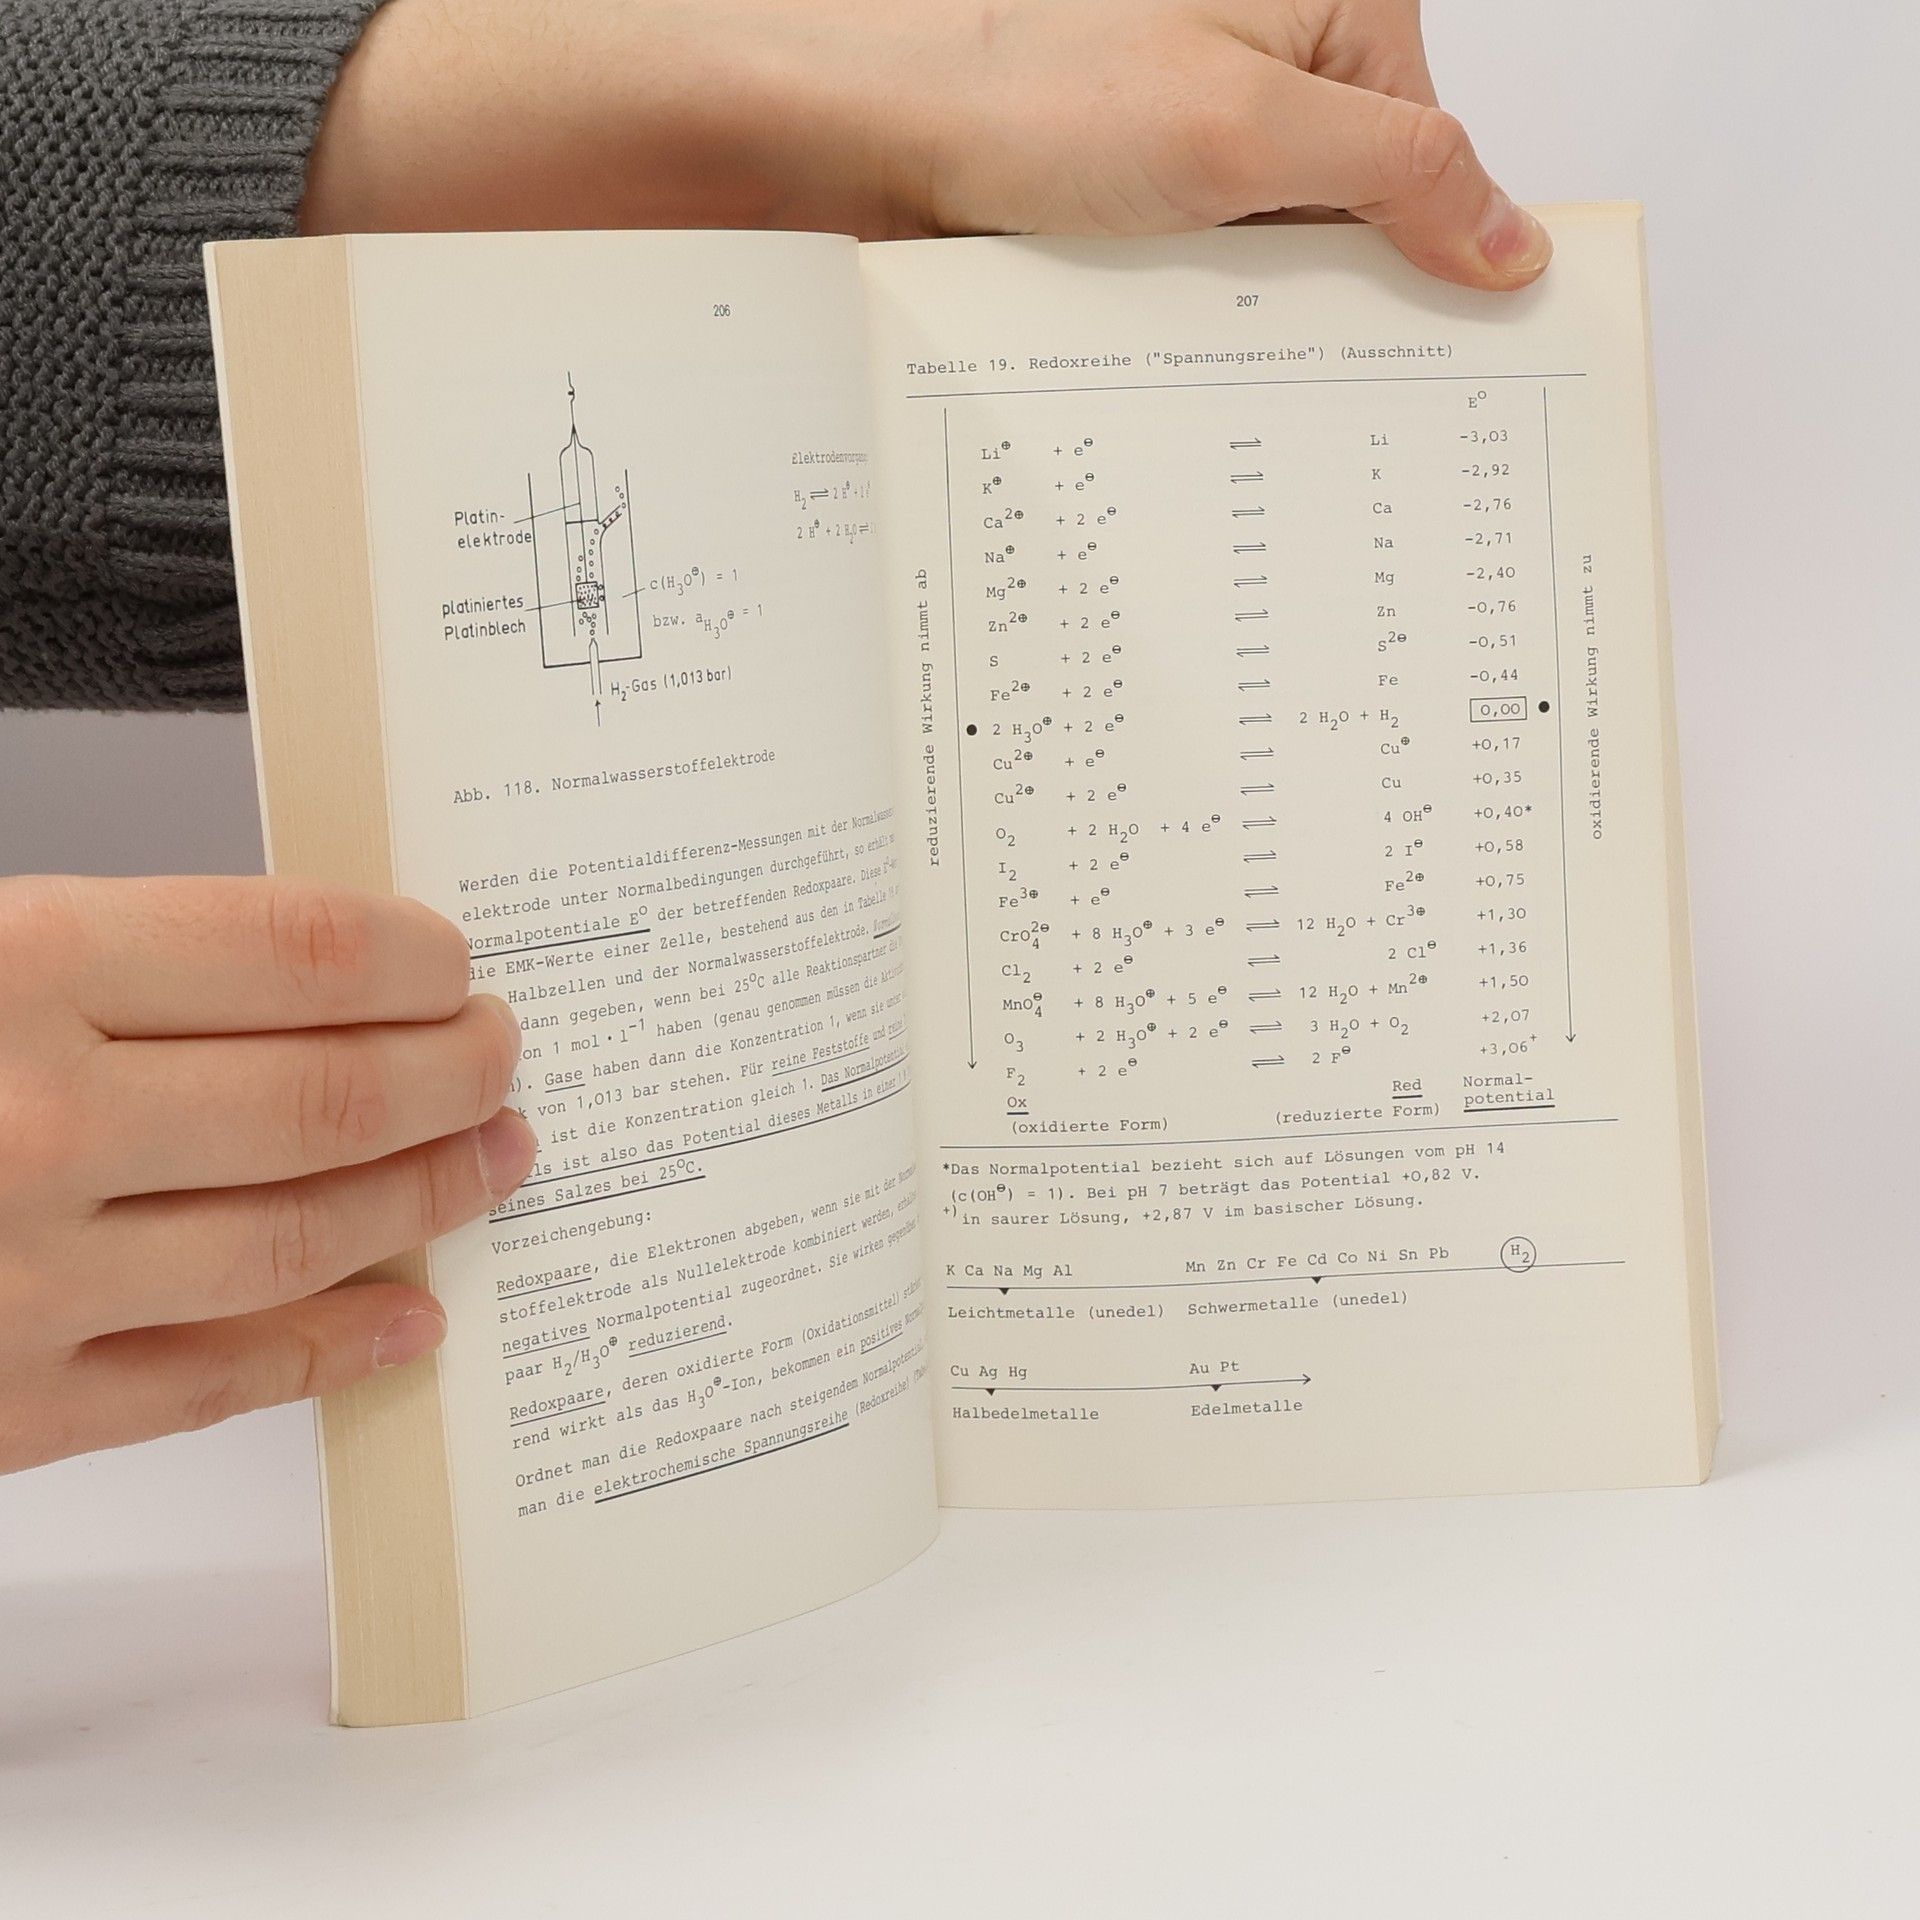 206
Elektrodenvorgang
H₂ ⇌ 2 H⊕ + 2
2 H⊕ + 2 H₂O ⇌
Platin-
elektrode
c(H₃O⊕) = 1
platiniertes
Platinblech
bzw. aH₃O⊕ = 1
H₂-Gas (1,013 bar)
Abb. 118. Normalwasserstoffelektrode
Werden die Potentialdifferenz-Messungen mit der
elektrode unter Normalbedingungen durchgeführt, so erhält
Normalpotentiale E⁰ der betreffenden Redoxpaare. Diese
die EMK-Werte einer Zelle, bestehend aus den in Tabelle
Halbzellen und der Normalwasserstoffelektrode.
dann gegeben, wenn bei 25⁰C alle Reaktionspartner die
on 1 mol · l⁻¹ haben (genau genommen müssen die
). Gase haben dann die Konzentration 1, wenn sie unter
k von 1,013 bar stehen. Für reine Feststoffe und
ist die Konzentration gleich 1. Das Normalpotential
ls ist also das Potential dieses Metalls in einer 1
seines Salzes bei 25⁰C.
Vorzeichengebung:
Redoxpaare, die Elektronen abgeben, wenn sie mit der
stoffelektrode als Nullelektrode kombiniert werden,
negatives Normalpotential zugeordnet. Sie wirken
paar H₂/H₃O⊕ reduzierend.
Redoxpaare, deren oxidierte Form (Oxidationsmittel)
rend wirkt als das H₃O⊕-Ion, bekommen ein positives
Ordnet man die Redoxpaare nach steigendem Normalpotential
man die elektrochemische Spannungsreihe (Redoxreihe)
207
Tabelle 19. Redoxreihe ("Spannungsreihe") (Ausschnitt)
reduzierende Wirkung nimmt ab
oxidierende Wirkung nimmt zu
E⁰
Li⊕ + e⊖ ⇌ Li -3,03
K⊕ + e⊖ ⇌ K -2,92
Ca²⊕ + 2 e⊖ ⇌ Ca -2,76
Na⊕ + e⊖ ⇌ Na -2,71
Mg²⊕ + 2 e⊖ ⇌ Mg -2,40
Zn²⊕ + 2 e⊖ ⇌ Zn -0,76
S + 2 e⊖ ⇌ S²⊖ -0,51
Fe²⊕ + 2 e⊖ ⇌ Fe -0,44
● 2 H₃O⊕ + 2 e⊖ ⇌ 2 H₂O + H₂ 0,00 ●
Cu²⊕ + e⊖ ⇌ Cu⊕ +0,17
Cu²⊕ + 2 e⊖ ⇌ Cu +0,35
O₂ + 2 H₂O + 4 e⊖ ⇌ 4 OH⊖ +0,40*
I₂ + 2 e⊖ ⇌ 2 I⊖ +0,58
Fe³⊕ + e⊖ ⇌ Fe²⊕ +0,75
CrO₄²⊖ + 8 H₃O⊕ + 3 e⊖ ⇌ 12 H₂O + Cr³⊕ +1,30
Cl₂ + 2 e⊖ ⇌ 2 Cl⊖ +1,36
MnO₄⊖ + 8 H₃O⊕ + 5 e⊖ ⇌ 12 H₂O + Mn²⊕ +1,50
O₃ + 2 H₃O⊕ + 2 e⊖ ⇌ 3 H₂O + O₂ +2,07
F₂ + 2 e⊖ ⇌ 2 F⊖ +3,06⁺
Ox Red Normal-
(oxidierte Form) (reduzierte Form) potential
*Das Normalpotential bezieht sich auf Lösungen vom pH 14
(c(OH⊖) = 1). Bei pH 7 beträgt das Potential +0,82 V.
⁺⁾in saurer Lösung, +2,87 V im basischer Lösung.
K Ca Na Mg Al Mn Zn Cr Fe Cd Co Ni Sn Pb H₂
Leichtmetalle (unedel) Schwermetalle (unedel)
Cu Ag Hg Au Pt
Halbedelmetalle Edelmetalle